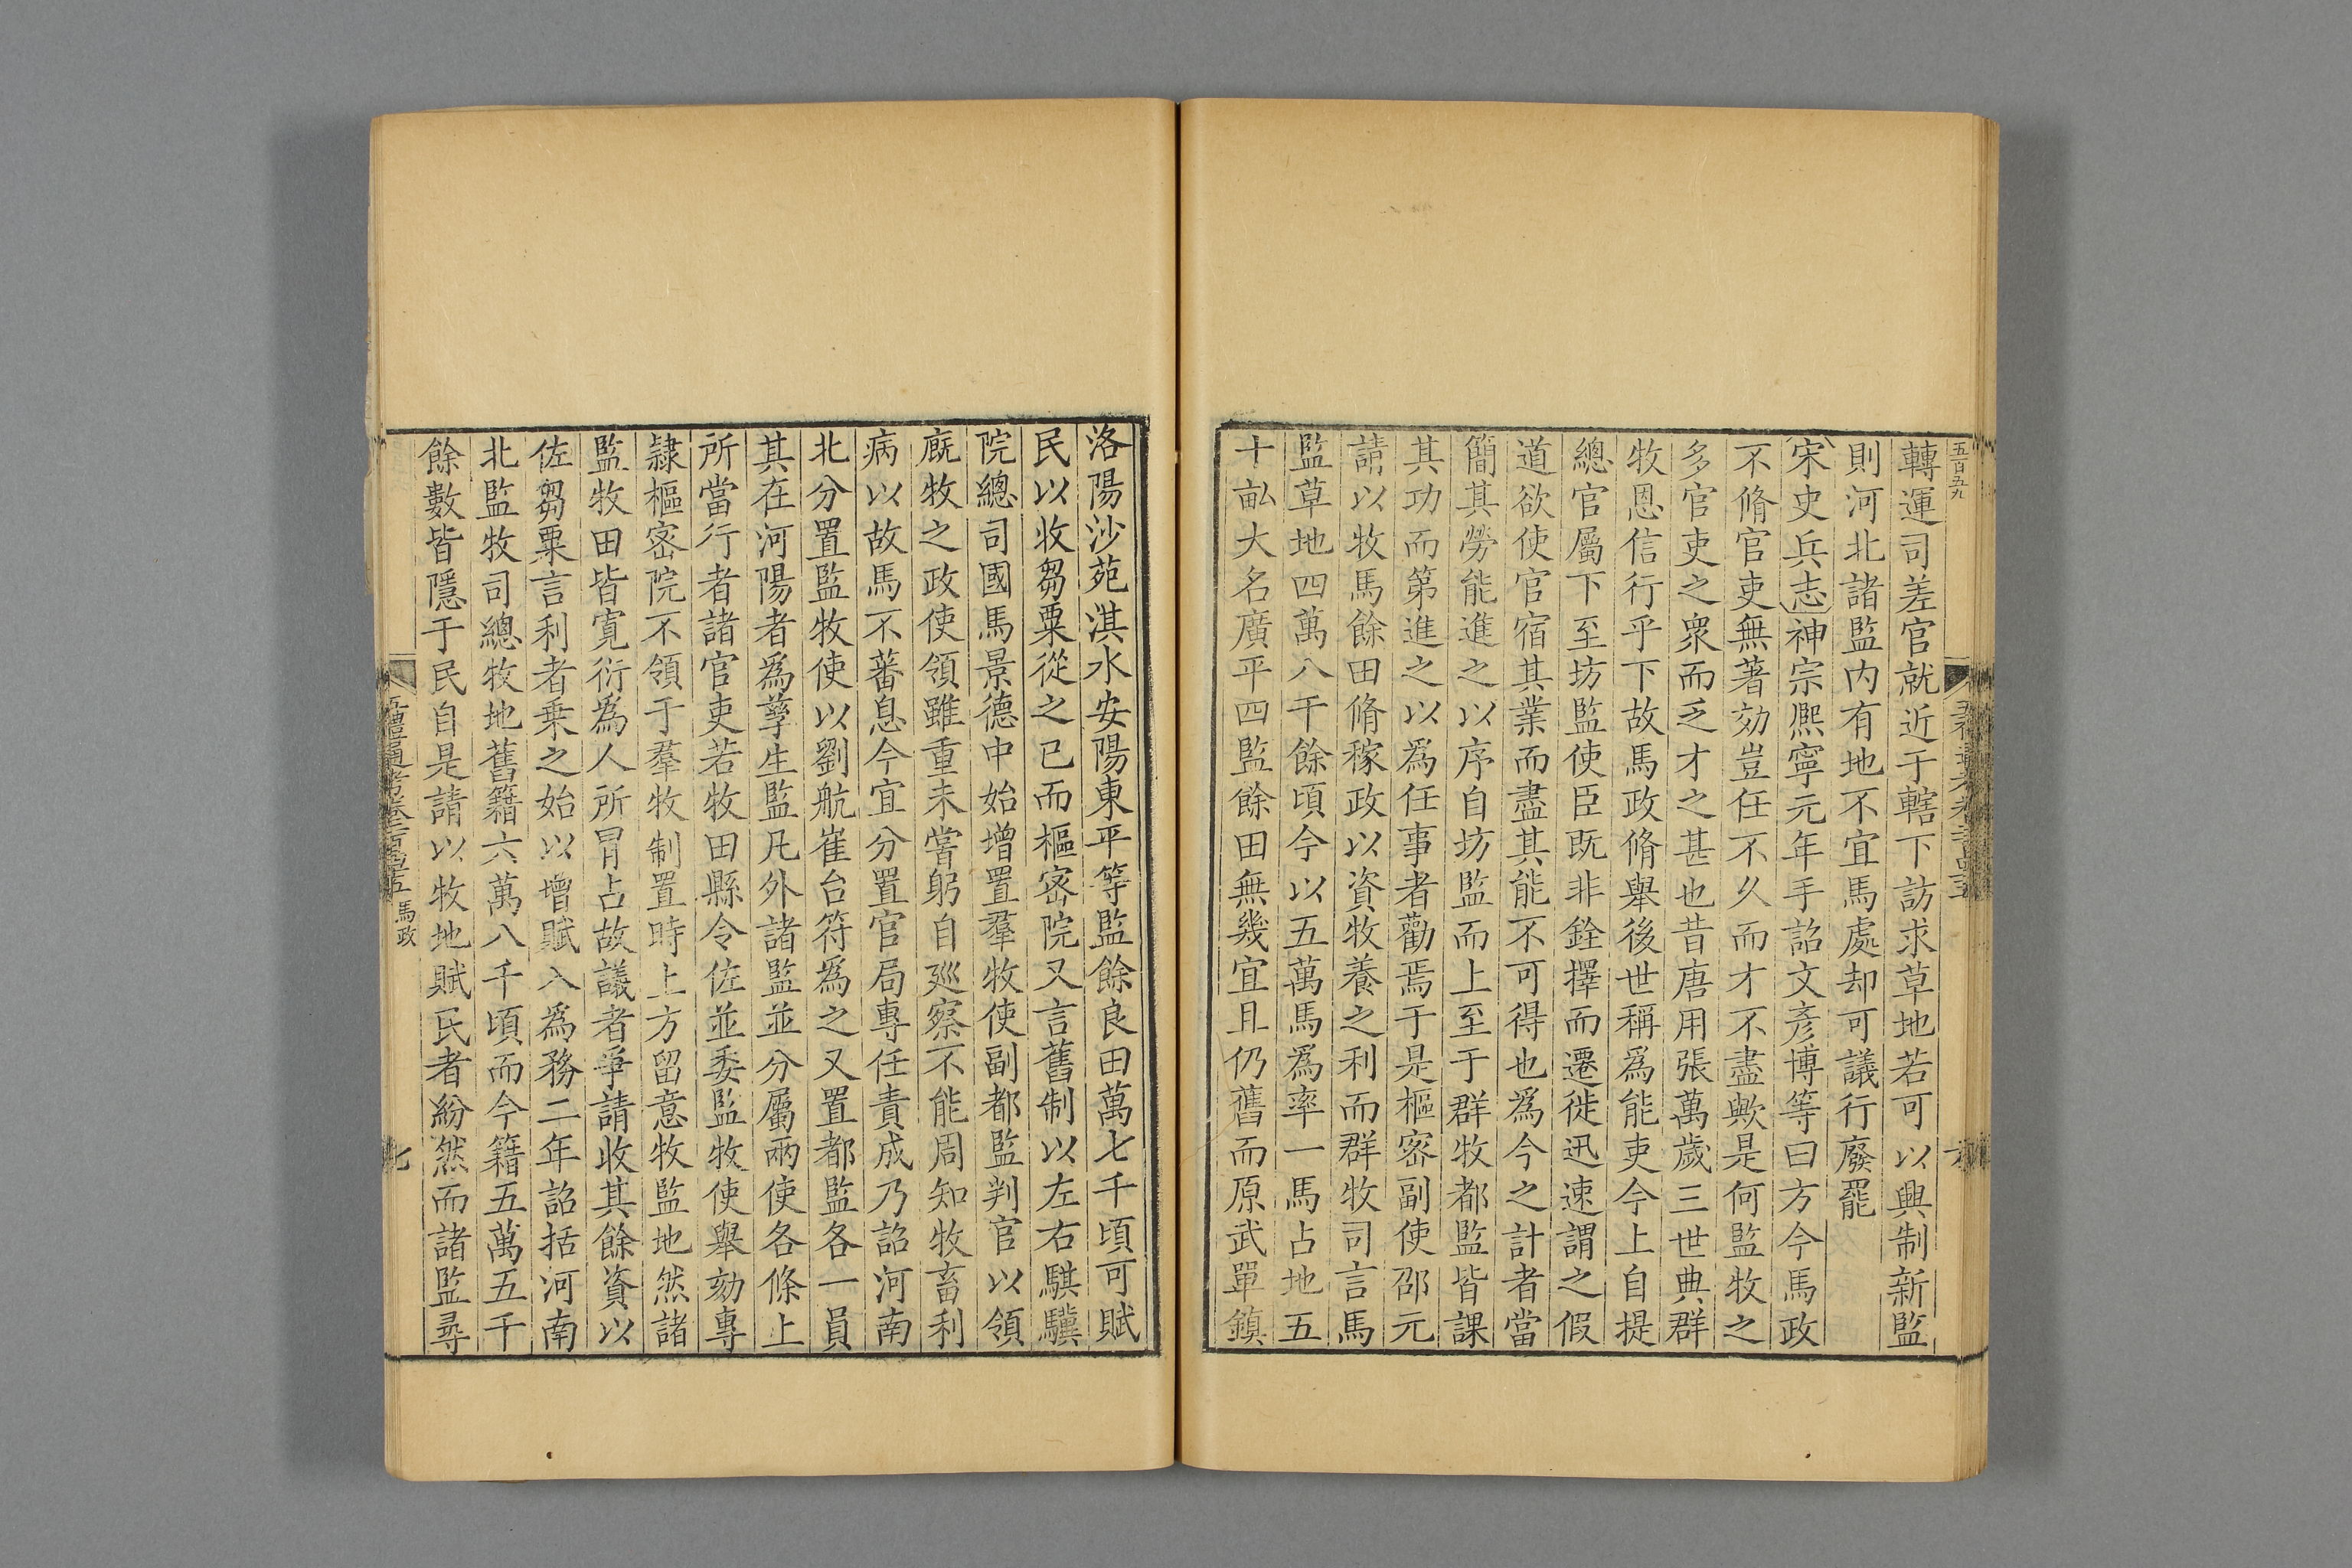 五百五九
轉運司差官就近于轄下訪求草地若可以興制新監
則河北諸監内有地不宜馬處却可議行廢罷
宋史兵志神宗熙寧元年手詔文彥博等曰方今馬政
不脩官吏無著効豈任不久而才不盡歟是何監牧之
多官吏之衆而乏才之甚也昔唐用張萬歲三世典群
牧恩信行乎下故馬政脩舉後世稱爲能吏今上自提
總官屬下至坊監使臣既非銓擇而遷徙迅速謂之假
道欲使官宿其業而盡其能不可得也爲今之計者當
簡其勞能進之以序自坊監而上至于群牧都監皆課
其功而第進之以爲任事者勸焉于是樞密副使邵元
請以牧馬餘田脩稼政以資牧養之利而群牧司言馬
監草地四萬八千餘頃今以五萬馬爲率一馬占地五
十畝大名廣平四監餘田無幾宜且仍舊而原武單鎮
洛陽沙苑淇水安陽東平等監餘良田萬七千頃可賦
民以收芻粟從之已而樞密院又言舊制以左右騏驥
院總司國馬景德中始增置羣牧使副都監判官以領
廐牧之政使領雖重未嘗躬自廵察不能周知牧畜利
病以故馬不蕃息今宜分置官局專任責成乃詔河南
北分置監牧使以劉航崔台符爲之又置都監各一員
其在河陽者爲孳生監凡外諸監並分屬兩使各條上
所當行者諸官吏若牧田縣令佐並委監牧使舉劾專
隷樞密院不領于羣牧制置時上方留意牧監地然諸
監牧田皆寛衍爲人所冐占故議者爭請收其餘資以
佐芻粟言利者乗之始以增賦入爲務二年詔括河南
北監牧司總牧地舊籍六萬八千頃而今籍五萬五千
餘數皆隱于民自是請以牧地賦民者紛然而諸監尋
五禮通考卷二百四十五 馬政